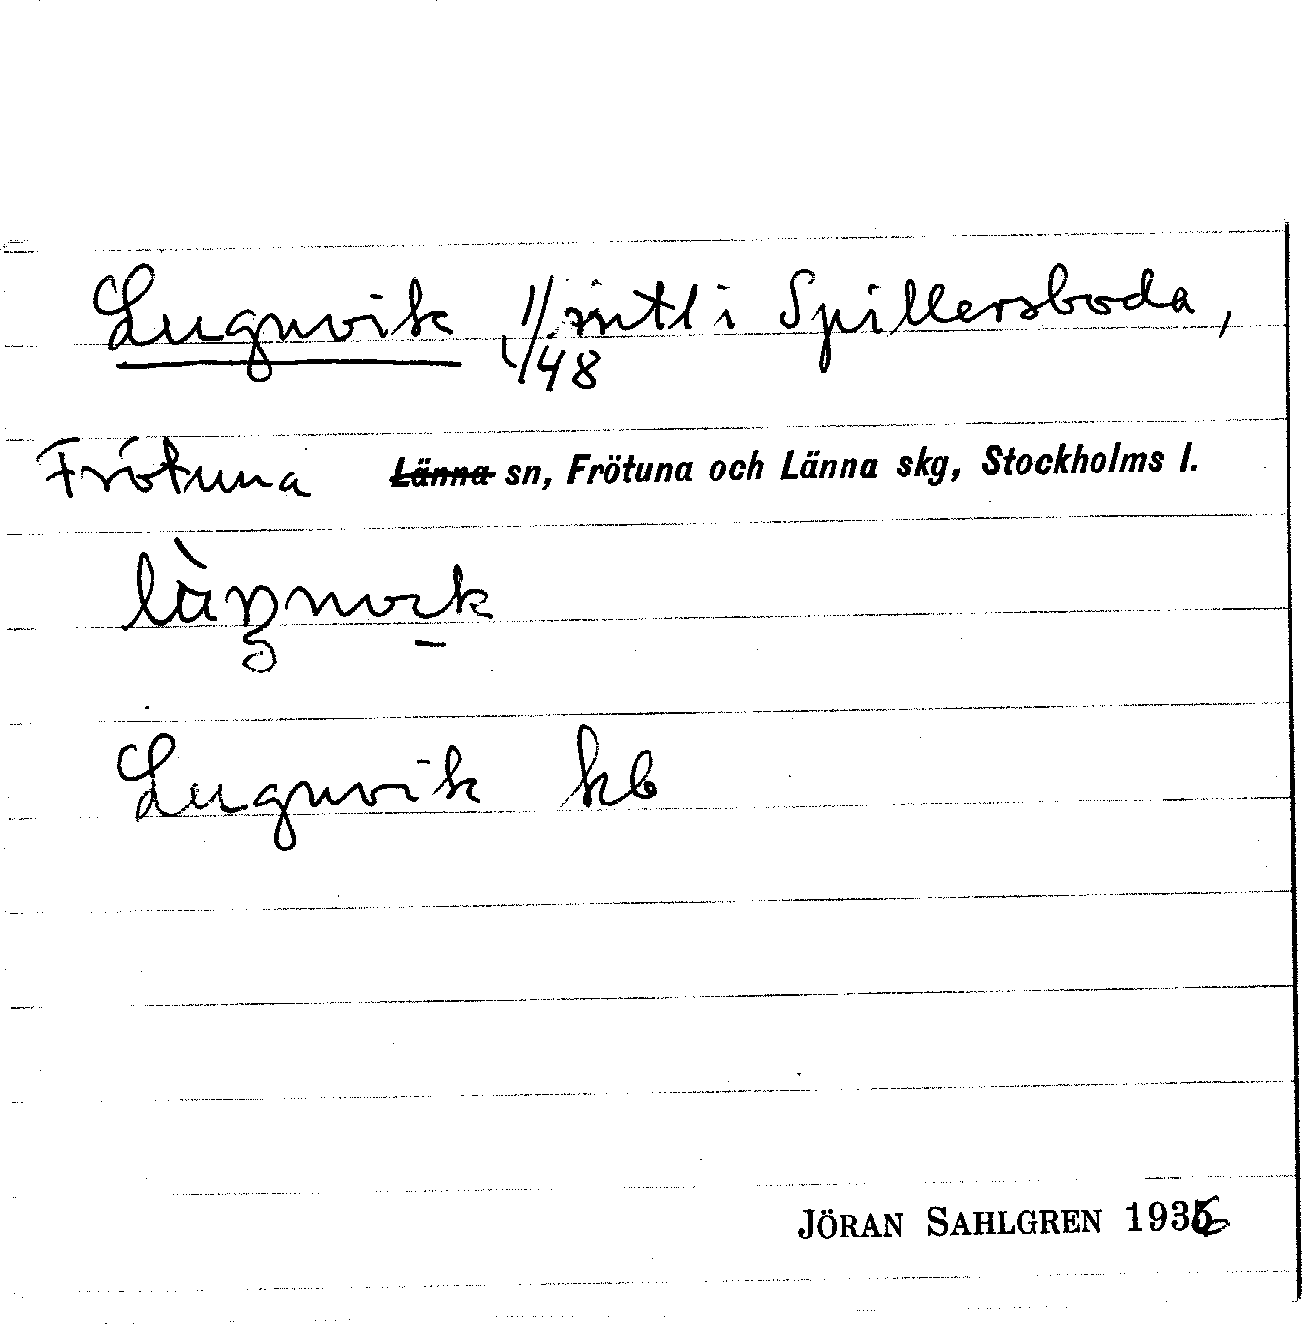 Lugnvik, 1/48 mtl i Spillersboda,
Frötuna Länna sn, Frötuna och Länna skg, Stockholms l.
Lugnvik kb
JÖRAN SAHLGREN 1936